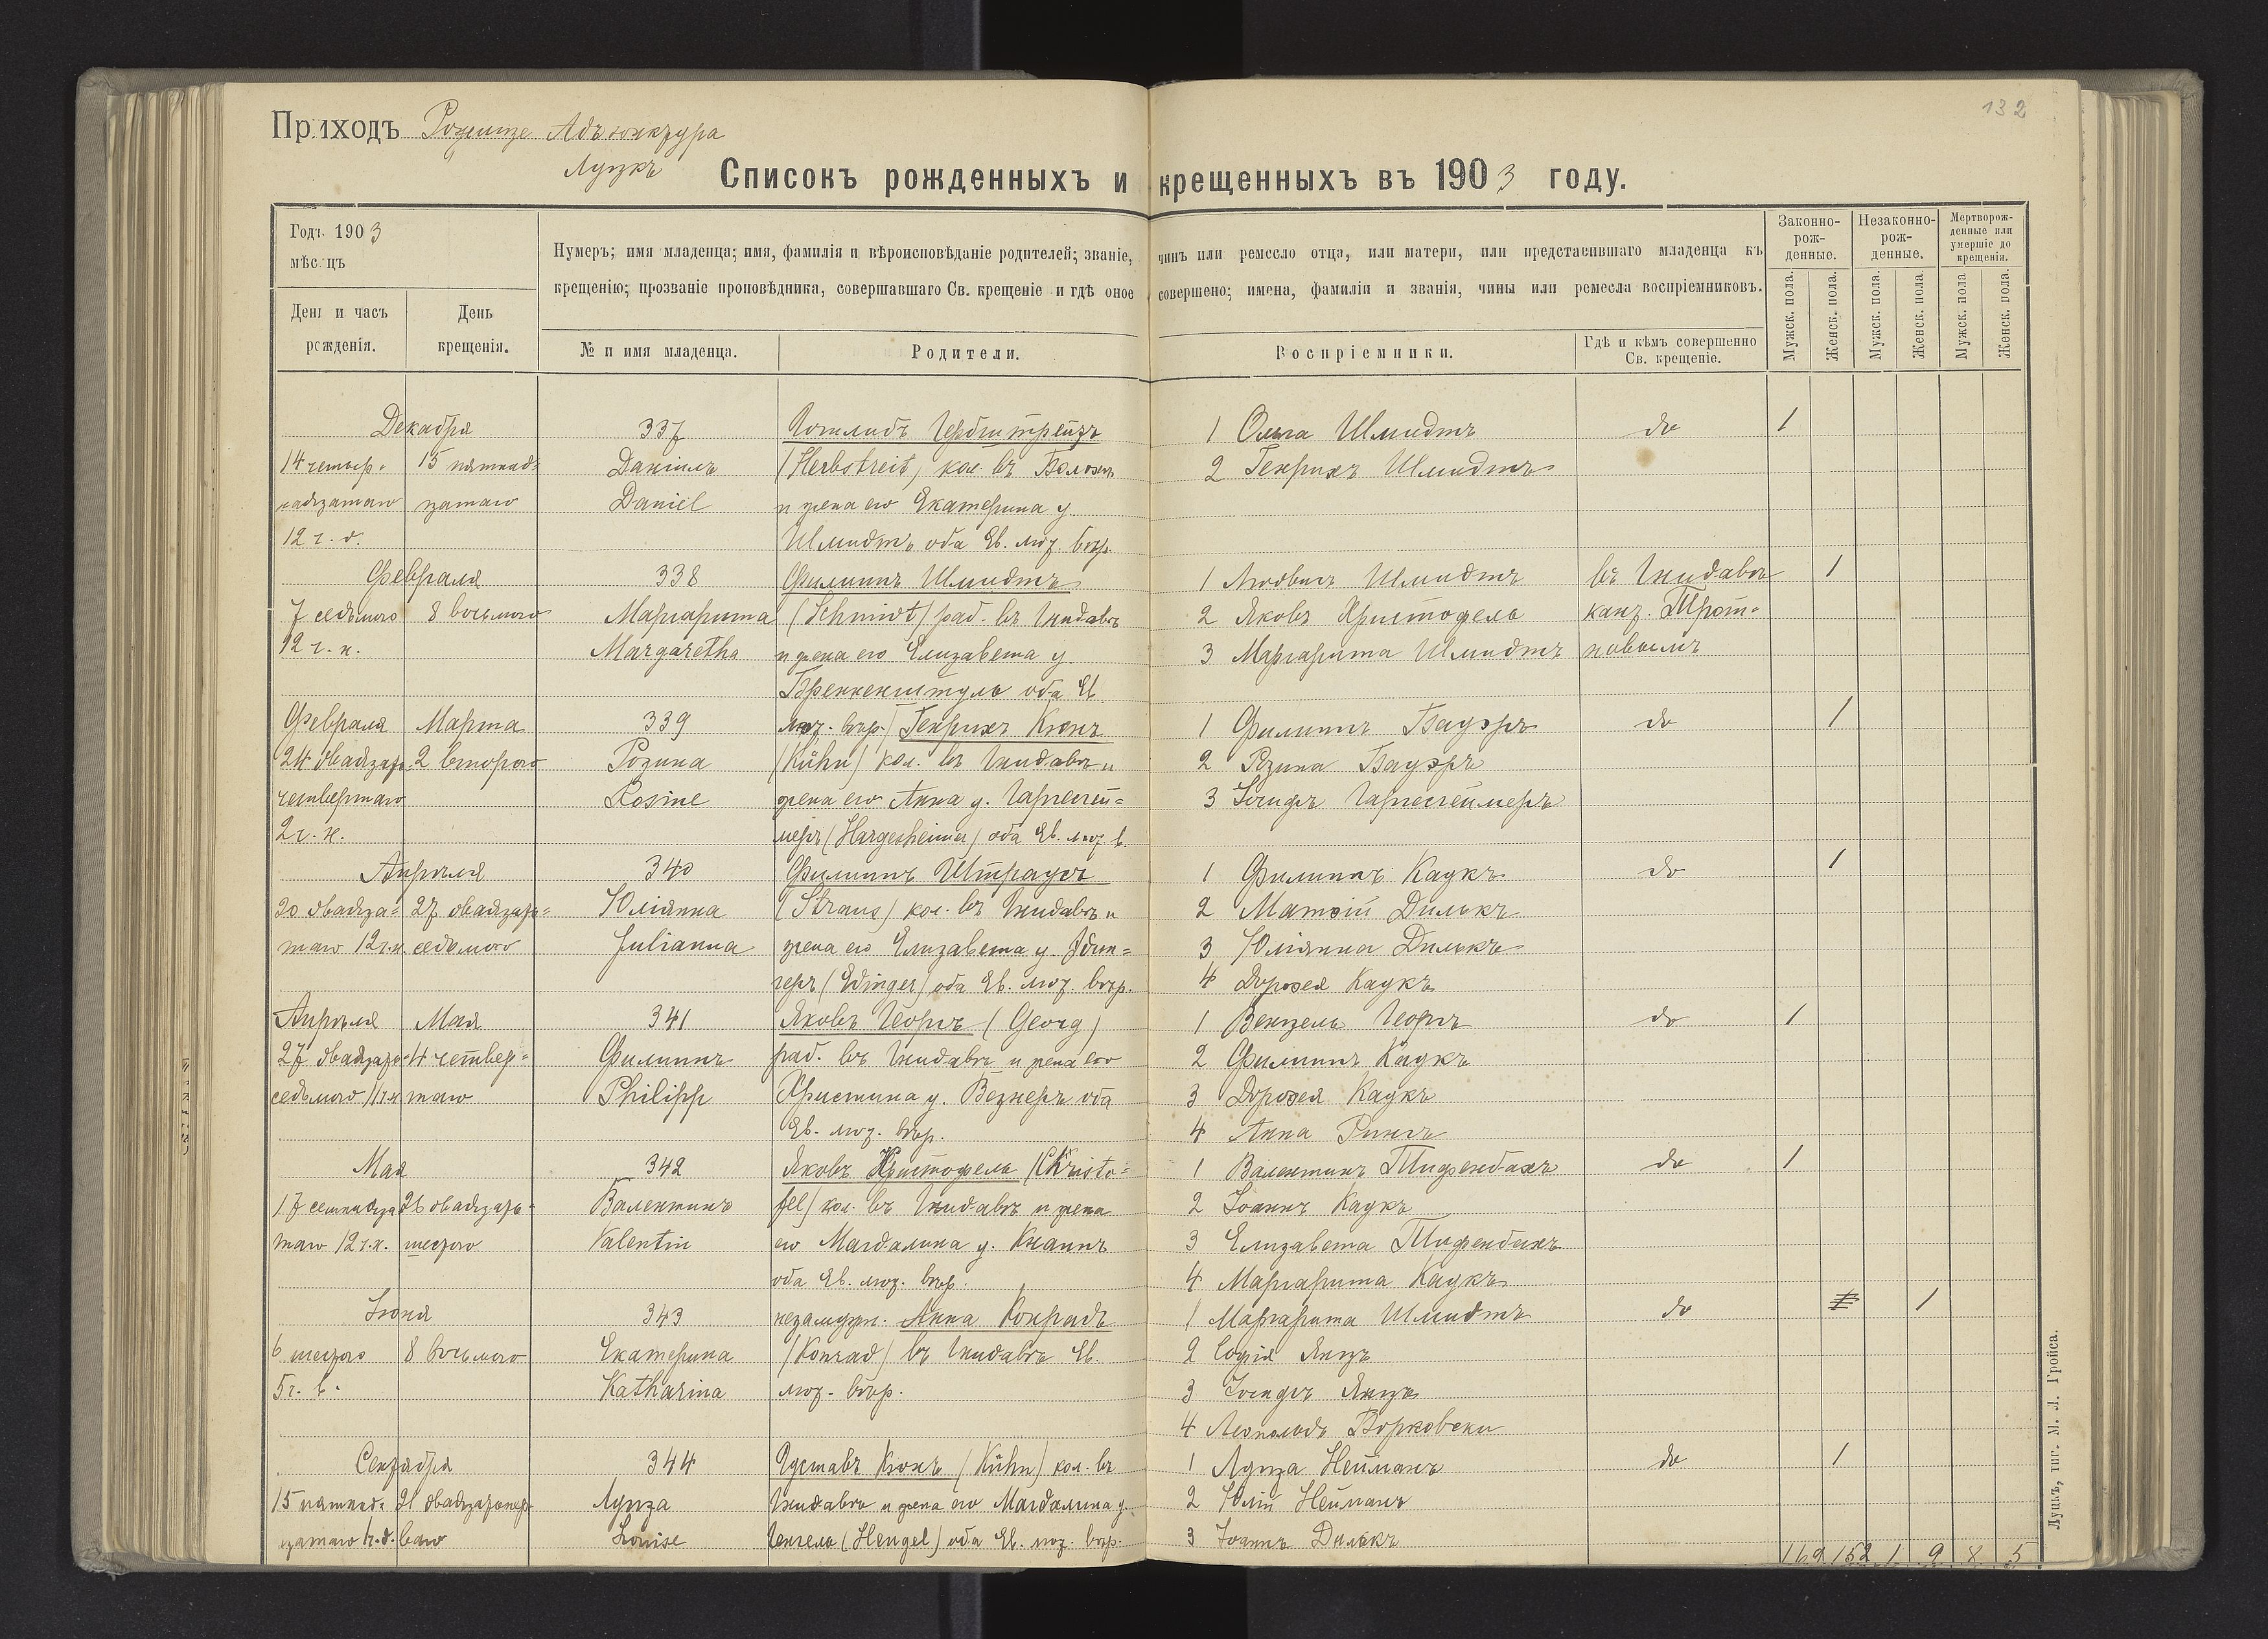 132
Приходъ Рожище Адъюнктура
Луцкъ
Списокъ рожденныхъ и крещенныхъ въ 1903 году.
Годъ 1903
мѣсяцъ
День и часъ рожденія.
День крещенія.
Нумеръ; имя младенца; имя, фамилія и вѣроисповѣданіе родителей; званіе, чинъ или ремесло отца, или матери, или представившаго младенца къ
крещенію; прозваніе проповѣдника, совершавшаго Св. крещеніе и гдѣ оное совершено; имена, фамиліи и званія, чины или ремесла воспріемниковъ.
№ и имя младенца.
Родители.
Воспріемники.
Гдѣ и кѣмъ совершенно
Св. крещеніе.
Законно-
рож-
денные.
Незаконно-
рож-
денные.
Мертворож-
денные или
умершіе до
крещенія.
Мужск. пола.
Женск. пола.
Мужск. пола.
Женск. пола.
Мужск. пола
Женск. пола.
Декабря 337 Готлибъ Гербштрейтъ 1 Ольга Шмидтъ do 1
14 четыр- 15 пятнад- Даніилъ (Herbstreit) кол. въ 2 Генрихъ Шмидтъ
надцатаго цатаго Daniel и жена его Екатерина у.
12 ч. д. Шмидтъ оба Ев. лют. вѣр.
Февраля 338 Филиппъ Шмидтъ 1 Людвигъ Шмидтъ въ Гнидавѣ 1
7 седьмого 8 восьмого Маргарита (Schmidt) раб. въ Гнидавѣ 2 Яковъ Христофель кант.
12 ч. н. Margaretha и жена его Елизавета у. 3 Маргарита Шмидтъ
оба Ев.
Февраля Марта 339 лют. вѣр. Генрихъ Кюнъ 1 Филиппъ Бауэръ do 1
24 двадцать 2 второго Розина (Kühn) кол. въ Гнидавѣ и 2 Розина Бауэръ
четвертаго Rosine жена его Анна у. Гаргесгей- 3 Іосифъ Гаргесгеймеръ
2 ч. н. меръ (Hargesheimer) оба Ев. лют. в.
Апрѣля 340 Филиппъ Штраусъ 1 Филиппъ Каукъ do 1
20 двадца- 27 двадцать- Юліянна (Straus) кол. въ Гнидавѣ и 2 Матвій Дилькъ
таго 12 ч. н. седьмого Julianna жена его Елизавета у. Един- 3 Юліянна Дилькъ
геръ (Edinger) оба Ев. лют. вѣр. 4 Дорофея Каукъ
Апрѣля Мая 341 Яковъ Георгъ (Georg) 1 Венцель Георгъ do 1
27 двадцать- 4 четвер- Филиппъ раб. въ Гнидавѣ и жена его 2 Филиппъ Каукъ
седьмого 11 ч. н. таго Philipp Христина у. Вегнеръ оба 3 Дорофея Каукъ
Ев. лют. вѣр. 4 Анна Рингъ
Мая 342 Яковъ Христофель (Christo- 1 Валентинъ Тифенбахъ do 1
17 семнадца 26 двадцать- Валентинъ fel) кол. въ Гнидавѣ и жена 2 Іоаннъ Каукъ
таго 12 ч. н. шестого Valentin его Магдалина у. Кнаппъ 3 Елизавета Тифенбахъ
оба Ев. лют. вѣр. 4 Маргарита Каукъ
Іюня 343 незамужн. Анна Конрадъ 1 Маргарита Шмидтъ do 1
6 шестого 8 восьмого Екатерина (Konrad) въ Гнидавѣ Ев. 2 Софія Янцъ
5 ч. в. Katharina лют. вѣр. 3 Іосифъ Янцъ
4 Леопольдъ Борковски
Сентября 344 Густавъ Кюнъ (Kühn) кол. въ 1 Луиза Нейманъ do 1
15 пятнад- 21 двадцать пер- Луиза Гнидавѣ и жена его Магдалина у. 2 Юлій Нейманъ
цатаго ваго Louise Генгель (Hengel) оба Ев. лют. вѣр. 3 Іоаннъ Дилькъ
162 152 1 9 8 5
Луцкъ, тип. М. Л. Гройса.